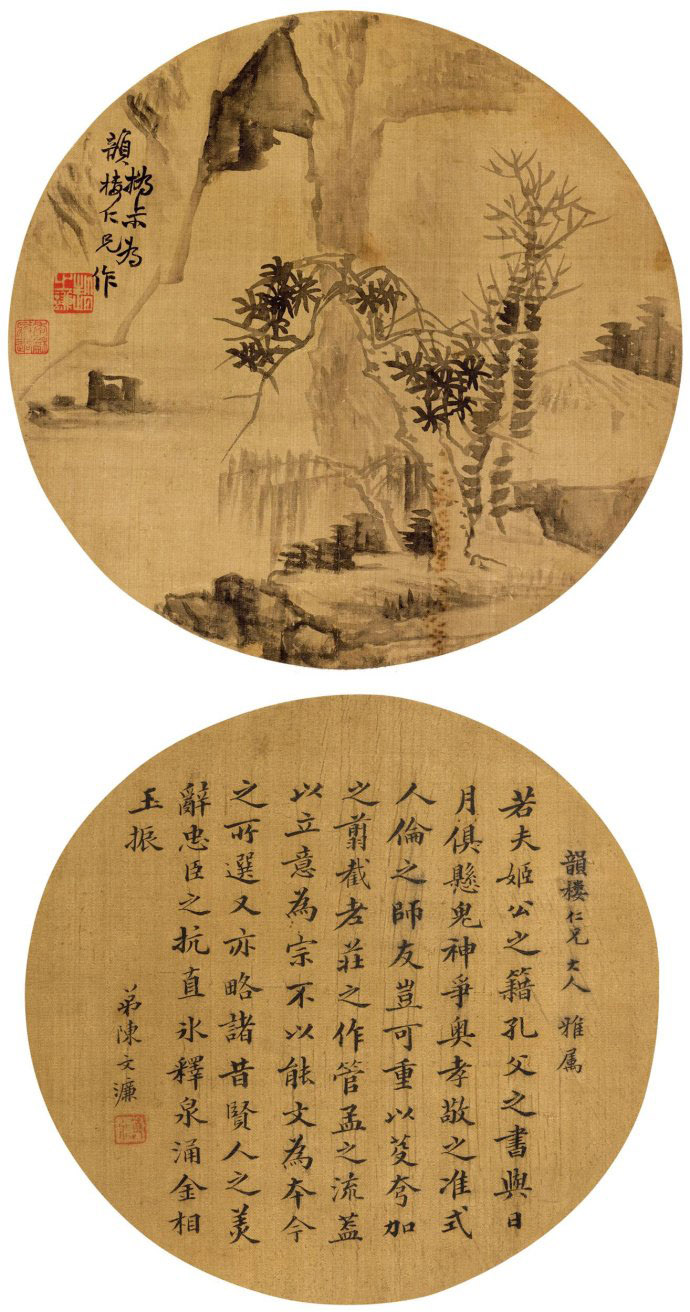 撝尗為
韻樓仁兄作
韻樓仁兄大人 雅属
若夫姬公之籍孔父之書與日
月俱懸鬼神爭奧孝敬之准式
人倫之師友豈可重以芟夷加
之翦截老莊之作管孟之流蓋
以立意為宗不以能文為本今
之所選又亦略諸昔賢人之美
辭忠臣之抗直氷釋泉涌金相
玉振
弟陳文濂